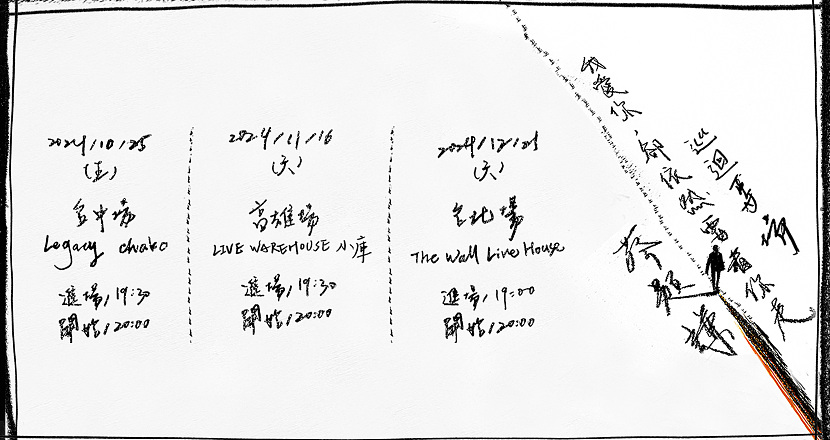 2024/10/25
(五)
台中場
Legacy
進場/19:30
開始/20:00
2024/11/16
(六)
高雄場
LIVE WAREHOUSE 小庫
進場/19:30
開始/20:00
2024/12/21
(六)
台北場
The Wall Live House
進場/19:00
開始/20:00
我愛你,卻依然看你走
巡迴專場